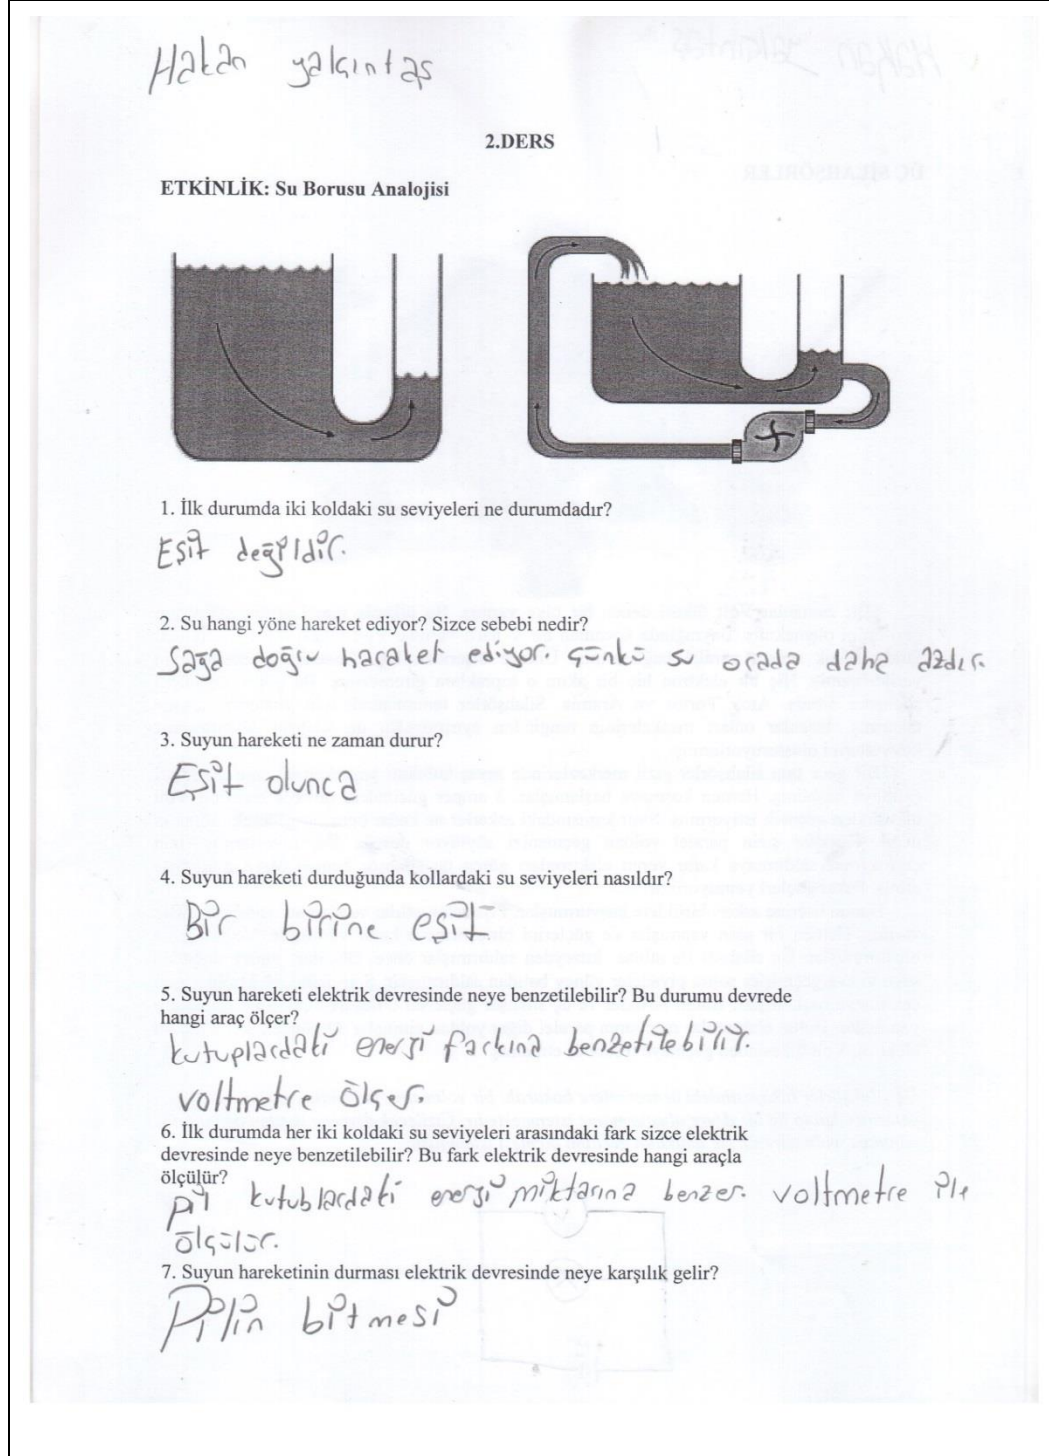 Hakan yalçıntaş
2.DERS
ETKİNLİK: Su Borusu Analojisi
1. İlk durumda iki koldaki su seviyeleri ne durumdadır?
Eşit değildir.
2. Su hangi yöne hareket ediyor? Sizce sebebi nedir?
Sağa doğru haraket ediyor. Çünkü su orada daha azdır.
3. Suyun hareketi ne zaman durur?
Eşit olunca
4. Suyun hareketi durduğunda kollardaki su seviyeleri nasıldır?
Bir birine eşit
5. Suyun hareketi elektrik devresinde neye benzetilebilir? Bu durumu devrede
hangi araç ölçer?
kutuplardaki enerji farkına benzetilebilir.
voltmetre ölçer.
6. İlk durumda her iki koldaki su seviyeleri arasındaki fark sizce elektrik
devresinde neye benzetilebilir? Bu fark elektrik devresinde hangi araçla
ölçülür?
pil kutublardaki enerji miktarına benzer. voltmetre ile
ölçülür.
7. Suyun hareketinin durması elektrik devresinde neye karşılık gelir?
Pilin bitmesi